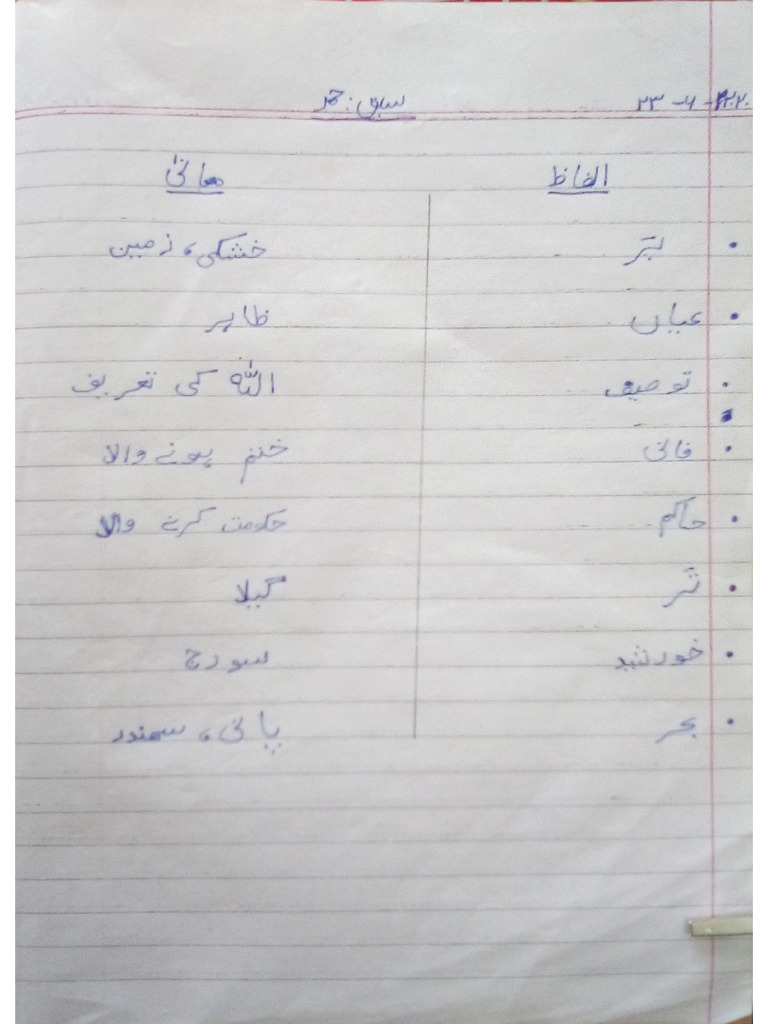 ۲۳-۶-۲۰۲۰
سبق: حمد
الفاظ معانی
• بَر خشکی، زمین
• عیاں ظاہر
• توصیف اللہ کی تعریف
• فانی ختم ہونے والا
• حاکم حکومت کرنے والا
• تَر گیلا
• خورشید سورج
• بحر پانی، سمندر